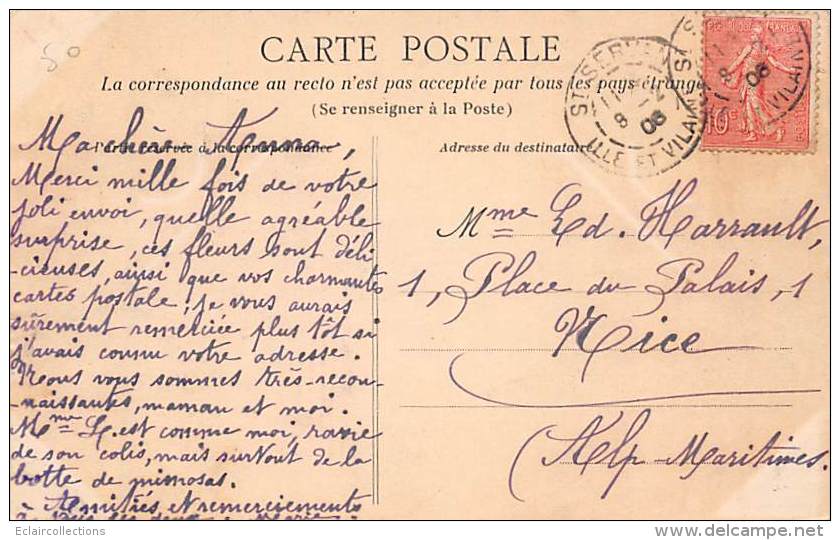 50
CARTE POSTALE
La correspondance au recto n'est pas acceptée par tous les pays étrange
(Se renseigner à la Poste)
Ma chère
Partie réservée à la correspondance
Merci mille fois de votre
joli envoi, quelle agréable
surprise, ces fleurs sont déli
-cieuses, ainsi que vos charmantes
cartes postale; je vous aurais
sûrement remerciée plus tôt si
j'avais connu votre adresse.
Nous vous sommes très-recon-
-naissantes, maman et moi.
Mme L. est comme moi, ravie
de son colis, mais surtout de la
botte de mimosas.
Amitiés et remerciements
à
Adresse du destinataire
Mme Ed. Harrault,
1, Place du Palais, 1
Nice
(Alp-Maritimes.
ST SERVAN
8 06
ILLE ET VILAINE
8 06
VILAINE
10
Eclaircollections
www.delcampe.net